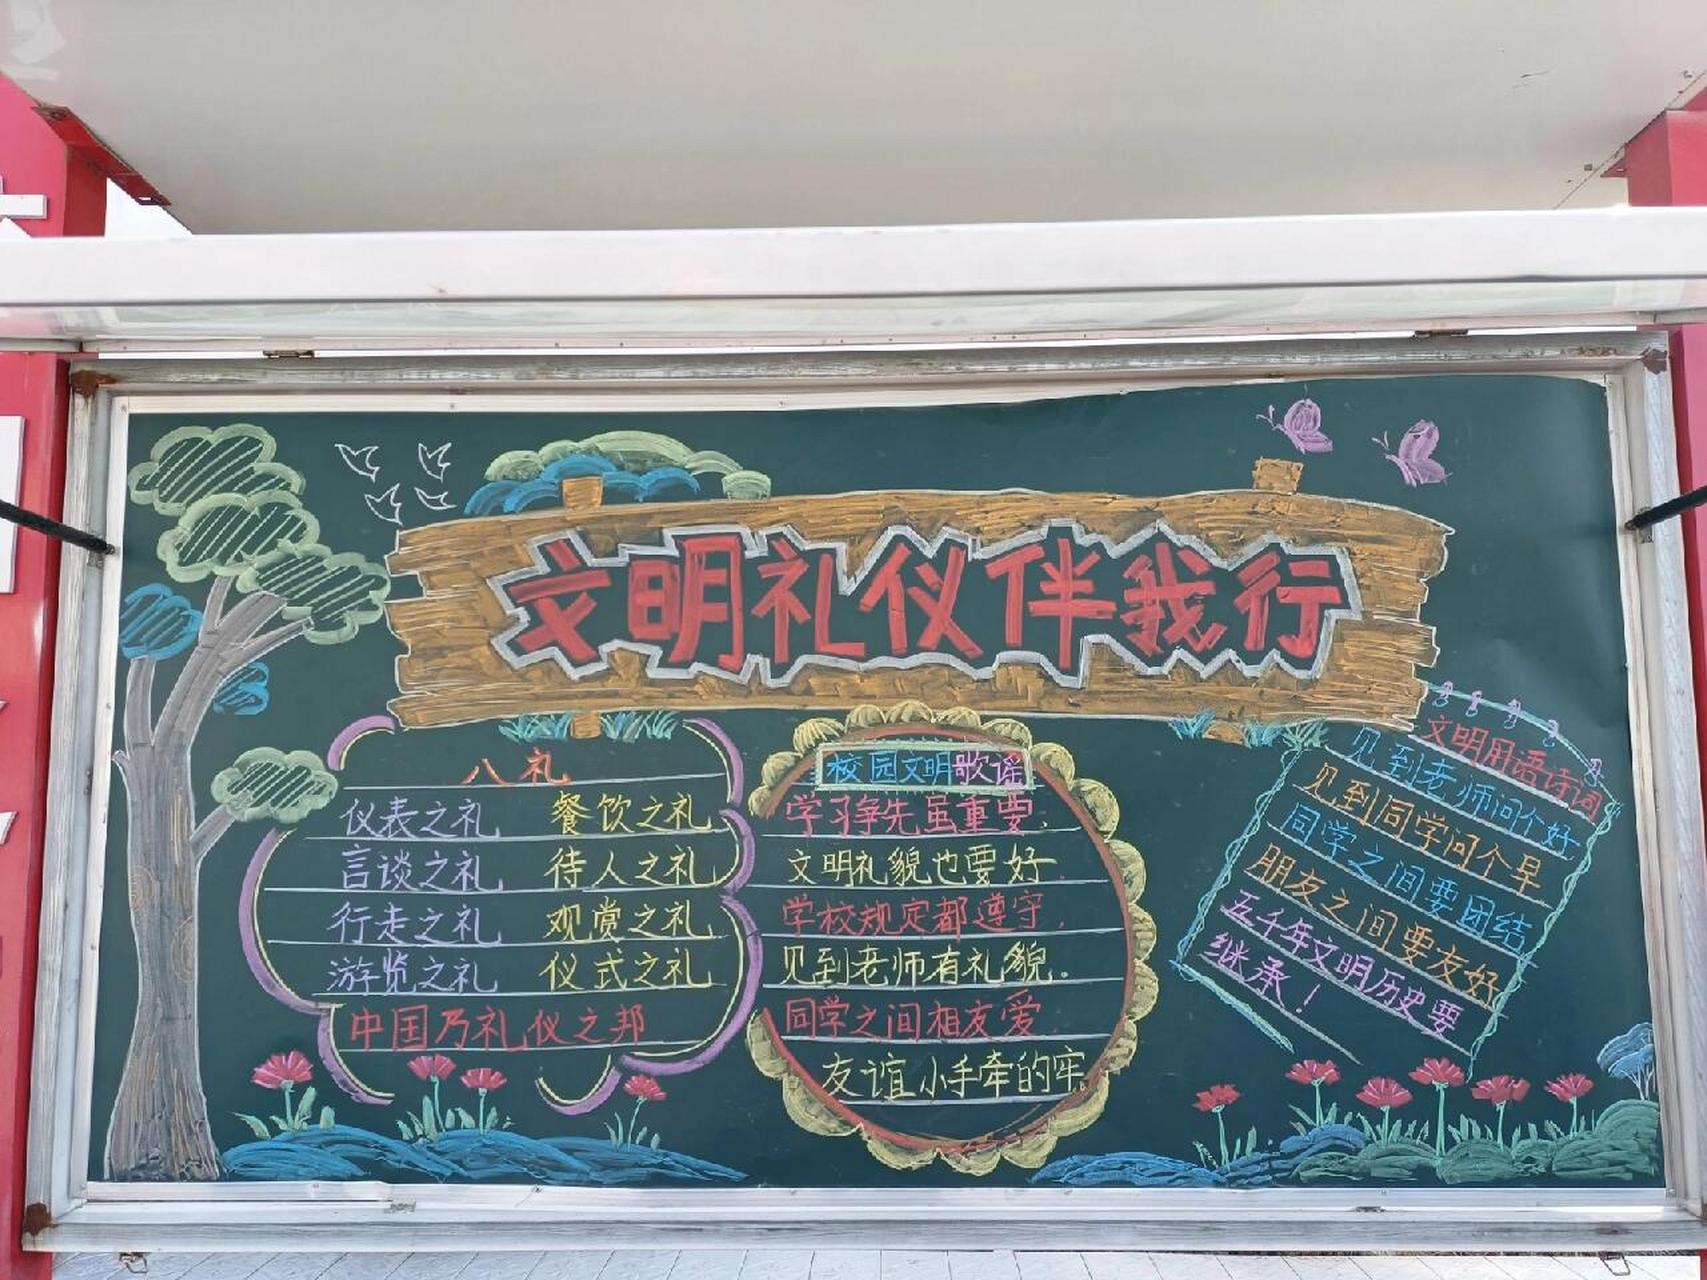 文明礼仪伴我行
八礼
仪表之礼 餐饮之礼
言谈之礼 待人之礼
行走之礼 观赏之礼
游览之礼 仪式之礼
中国乃礼仪之邦
校园文明歌谣
学习争先虽重要.
文明礼貌也要好
学校规定都遵守.
见到老师有礼貌.
同学之间相友爱
友谊小手牵的牢.
文明用语诗词
见到老师问个好
见到同学问个早
同学之间要团结
朋友之间要友好
五千年文明历史要
继承！